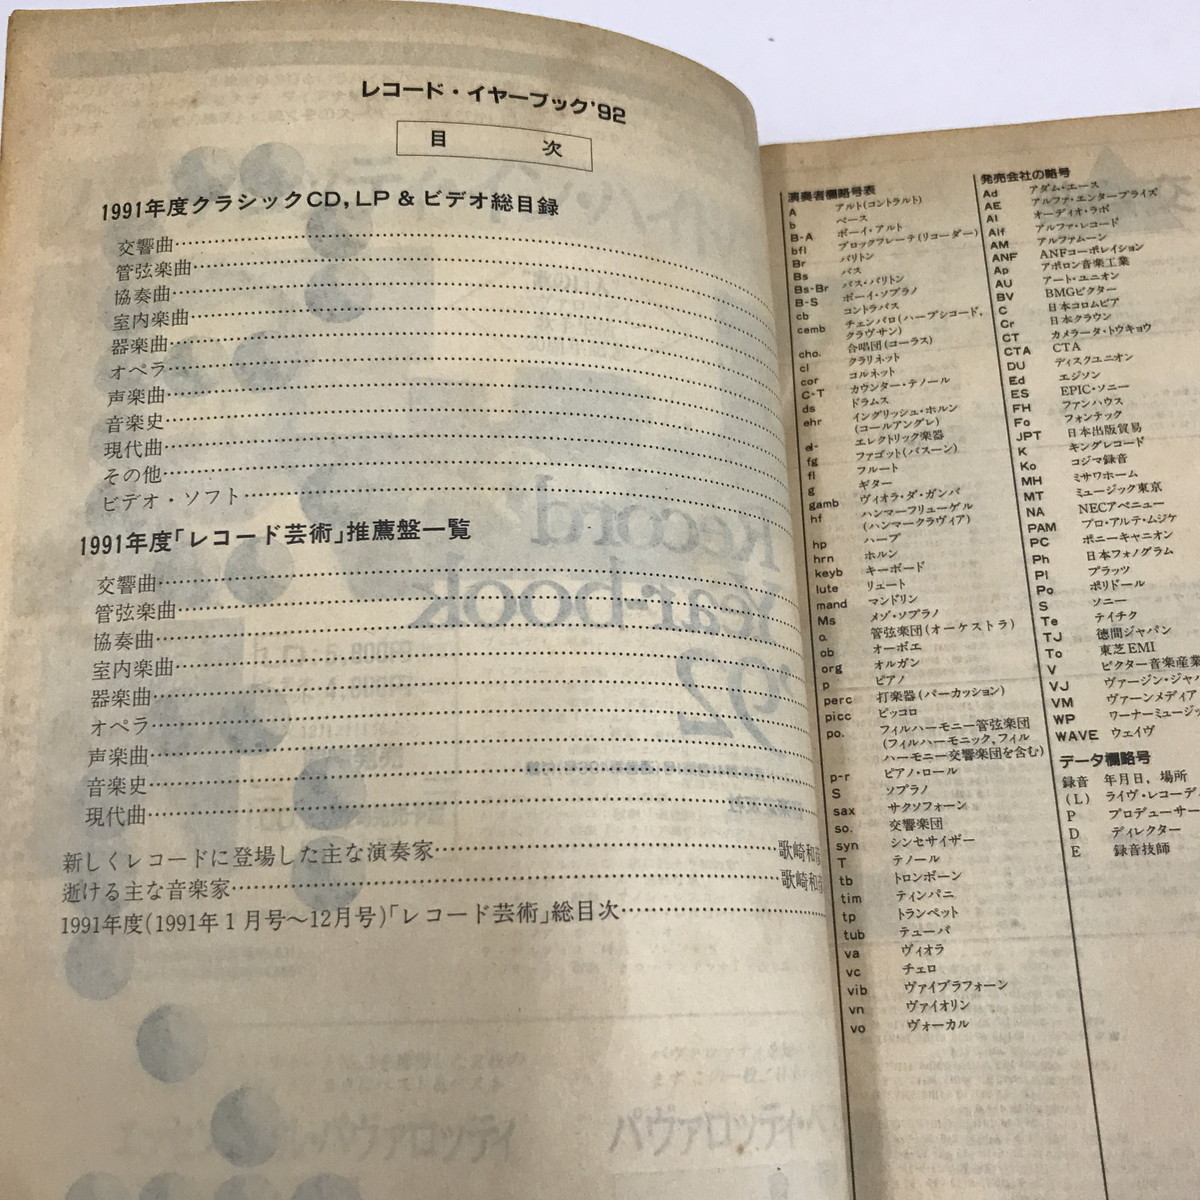 レコード・イヤーブック'92
目 次
1991年度クラシックCD, LP & ビデオ総目録
交響曲
管弦楽曲
協奏曲
室内楽曲
器楽曲
オペラ
声楽曲
音楽史
現代曲
その他
ビデオ・ソフト
1991年度「レコード芸術」推薦盤一覧
交響曲
管弦楽曲
協奏曲
室内楽曲
器楽曲
オペラ
声楽曲
音楽史
現代曲
新しくレコードに登場した主な演奏家 歌崎和
逝ける主な音楽家 歌崎和
1991年度(1991年1月号〜12月号)「レコード芸術」総目次
演奏者欄略号表
A アルト(コントラルト)
b ベース
B-A ボーイ・アルト
bfl ブロックフレーテ(リコーダー)
Br バリトン
Bs バス
Bs-Br バス・バリトン
B-S ボーイ・ソプラノ
cb コントラバス
cemb チェンバロ(ハープシコード,
クラヴサン)
cho. 合唱団(コーラス)
cl クラリネット
cor コルネット
C-T カウンター・テノール
ds ドラムス
ehr イングリッシュ・ホルン
(コールアングレ)
el- エレクトリック楽器
fg ファゴット(バスーン)
fl フルート
g ギター
gamb ヴィオラ・ダ・ガンバ
hf ハンマーフリューゲル
(ハンマークラヴィア)
hp ハープ
hrn ホルン
keyb キーボード
lute リュート
mand マンドリン
Ms メゾ・ソプラノ
o. 管弦楽団(オーケストラ)
ob オーボエ
org オルガン
p ピアノ
perc 打楽器(パーカッション)
picc ピッコロ
po. フィルハーモニー管弦楽団
(フィルハーモニック, フィル
ハーモニー交響楽団を含む)
p-r ピアノ・ロール
S ソプラノ
sax サクソフォーン
so. 交響楽団
syn シンセサイザー
T テノール
tb トロンボーン
tim ティンパニ
tp トランペット
tub テューバ
va ヴィオラ
vc チェロ
vib ヴァイブラフォーン
vn ヴァイオリン
vo ヴォーカル
発売会社の略号
Ad アダム・エース
AE アルファ・エンタープライズ
Al オーディオ・ラボ
Alf アルファ・レコード
AM アルファムーン
ANF ANFコーポレイション
Ap アポロン音楽工業
AU アート・ユニオン
BV BMGビクター
C 日本コロムビア
Cr 日本クラウン
CT カメラータ・トウキョウ
CTA CTA
DU ディスクユニオン
Ed エジソン
ES EPIC・ソニー
FH ファンハウス
Fo フォンテック
JPT 日本出版貿易
K キングレコード
Ko コジマ録音
MH ミサワホーム
MT ミュージック東京
NA NECアベニュー
PAM プロ・アルテ・ムジケ
PC ポニーキャニオン
Ph 日本フォノグラム
Pl プラッツ
Po ポリドール
S ソニー
Te テイチク
TJ 徳間ジャパン
To 東芝EMI
V ビクター音楽産業
VJ ヴァージン・ジャパ
VM ヴァーンメディア
WP ワーナーミュージッ
WAVE ウェイヴ
データ欄略号
録音 年月日, 場所
(L) ライヴ・レコーデ
P プロデューサー
D ディレクター
E 録音技師